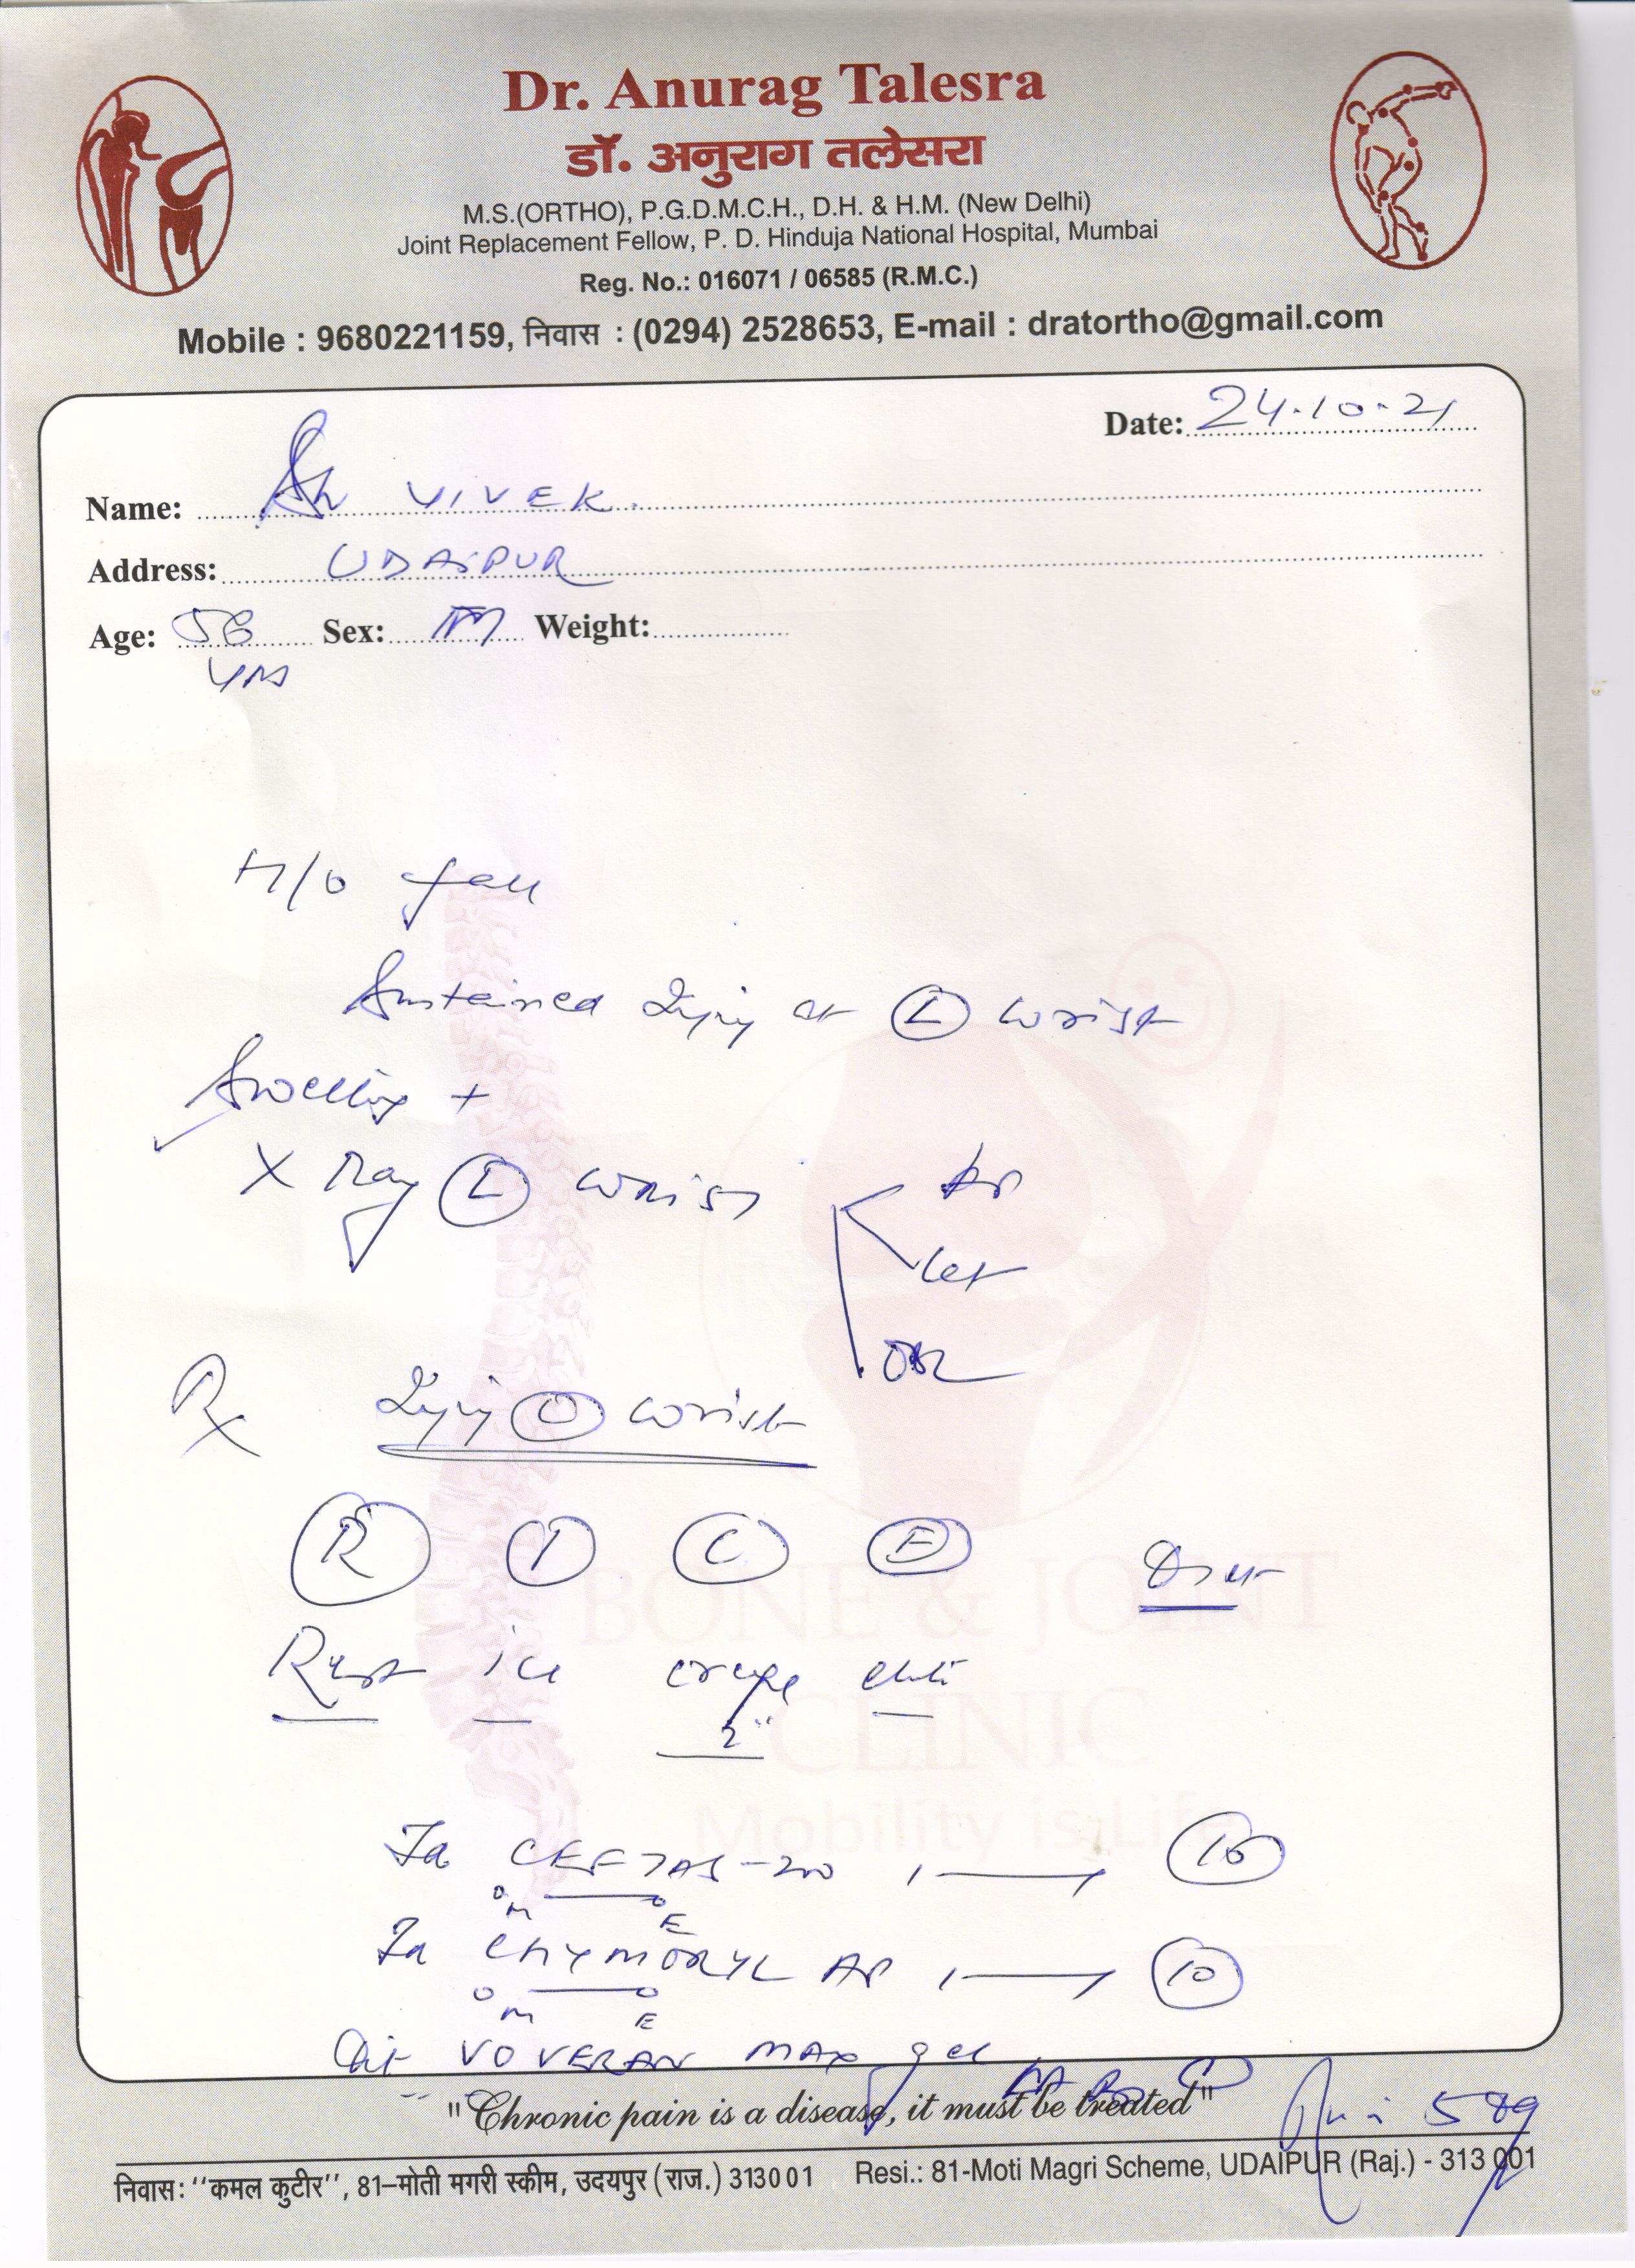 Dr. Anurag Talesra
डॉ. अनुराग तलेसरा
M.S.(ORTHO), P.G.D.M.C.H., D.H. & H.M. (New Delhi)
Joint Replacement Fellow, P. D. Hinduja National Hospital, Mumbai
Reg. No.: 016071 / 06585 (R.M.C.)
Mobile : 9680221159, निवास : (0294) 2528653, E-mail : dratortho@gmail.com
Date: 24.10.21
Name: Sh VIVEK.
Address: UDAIPUR
Age: Sex: M Weight:
yrs
H/o fall
Sustained Injury at (L) wrist
Swelling +
X Ray (L) WRIST AP
Lat
OBL
Rx Injury wrist
R I C E
Rest ice crepe
2"
CEFTAS-200 1
M E
CHYMORAL AP 1 10
M E
VOVERAN MAX gel
"Chronic pain is a disease, it must be treated"
निवास: "कमल कुटीर", 81-मोती मगरी स्कीम, उदयपुर (राज.) 313001 Resi.: 81-Moti Magri Scheme, UDAIPUR (Raj.) - 313 001
BONE & JOINT
CLINIC
Mobility is Life